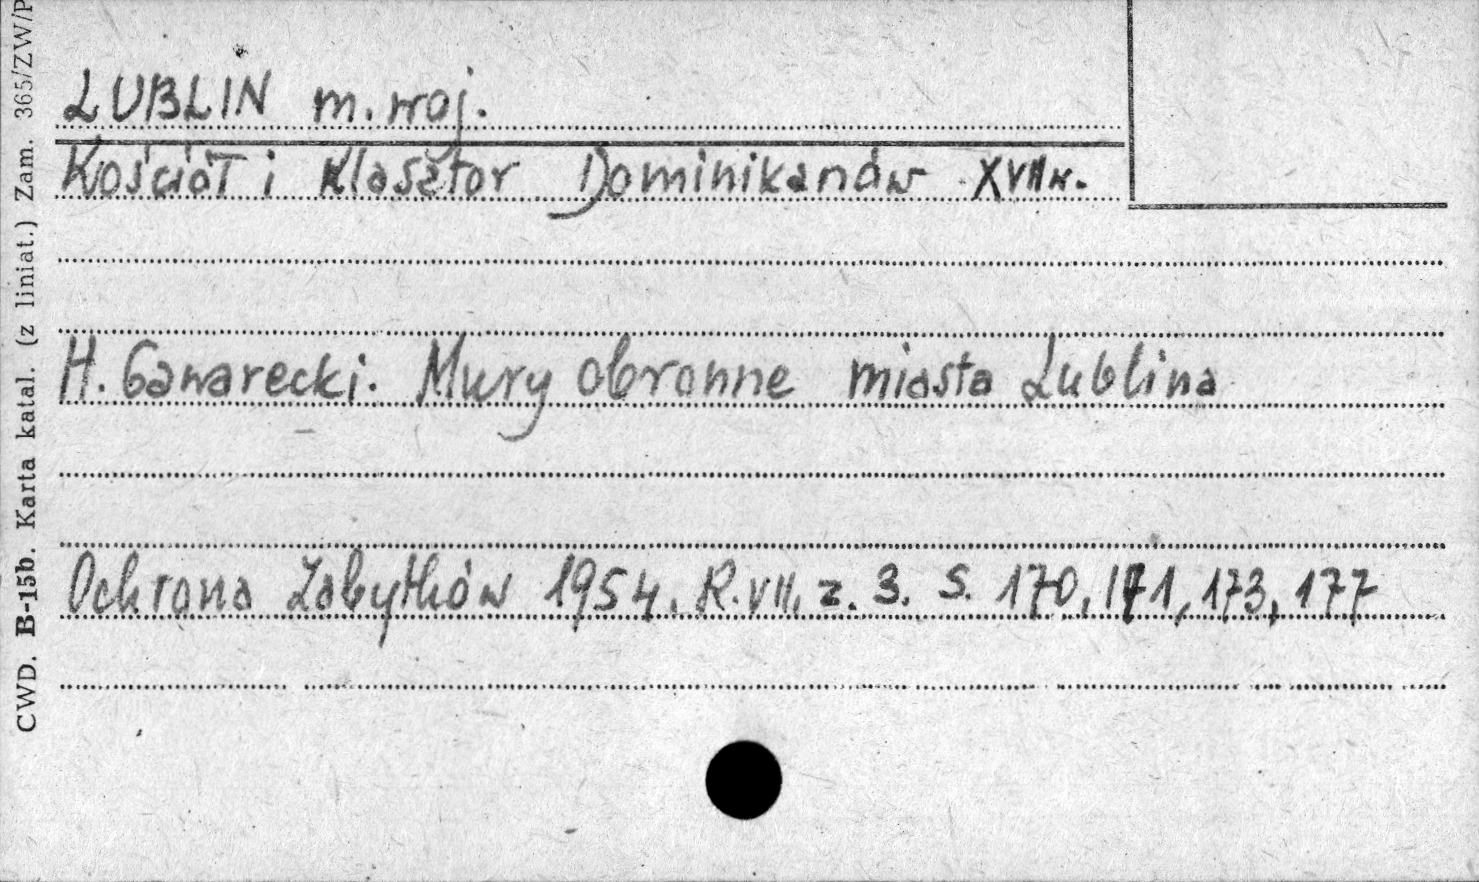 LUBLIN m. woj.
Kościół i Klasztor Dominikanów XVII w.
H. Gawarecki. Mury obronne miasta Lublina
Ochrona Zabytków 1954. R. VII. z. 3. S. 170, 171, 173, 177
CWD. B-15b. Karta katal. (z liniat.) Zam. 365/ZW/P